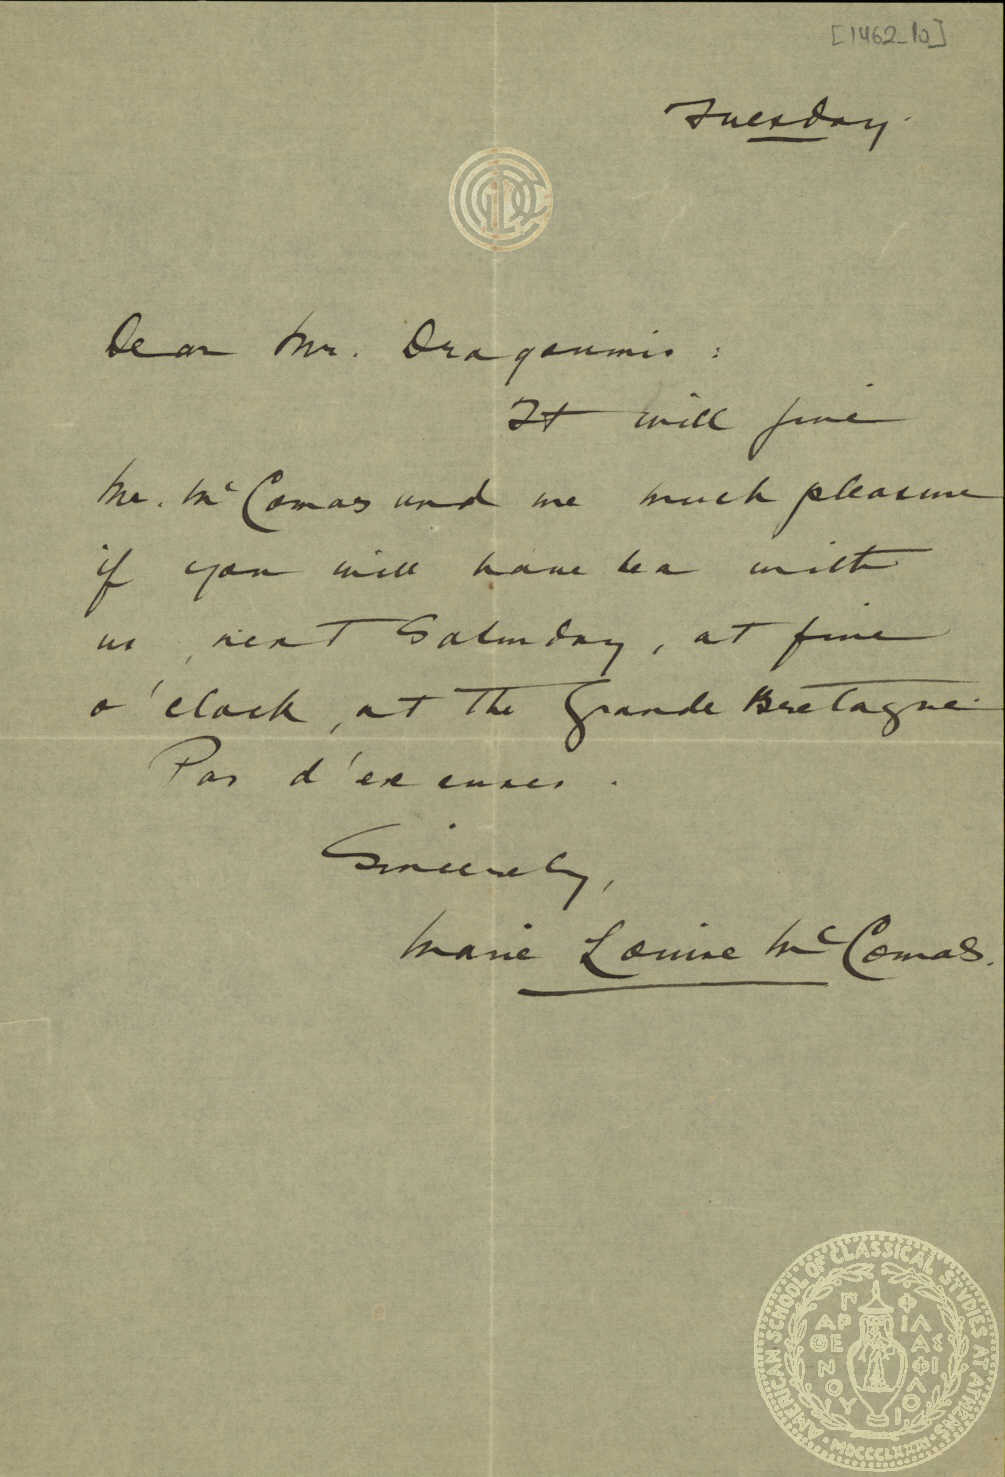 [1462_10]
Tuesday.
Dear Mr. Dragoumis:
It will give
Mr. McComas and me much pleasure
if you will have tea with
us, next Saturday, at five
o'clock, at the Grande Bretagne.
Pas d'excuses.
Sincerely,
Marie Louise McComas.
AMERICAN SCHOOL OF CLASSICAL STVDIES AT ATHENS
MDCCCLXXXI
ΠΑΡΘΕΝΟΥ
ΦΙΛΑΣ ΦΙΛΟΙ